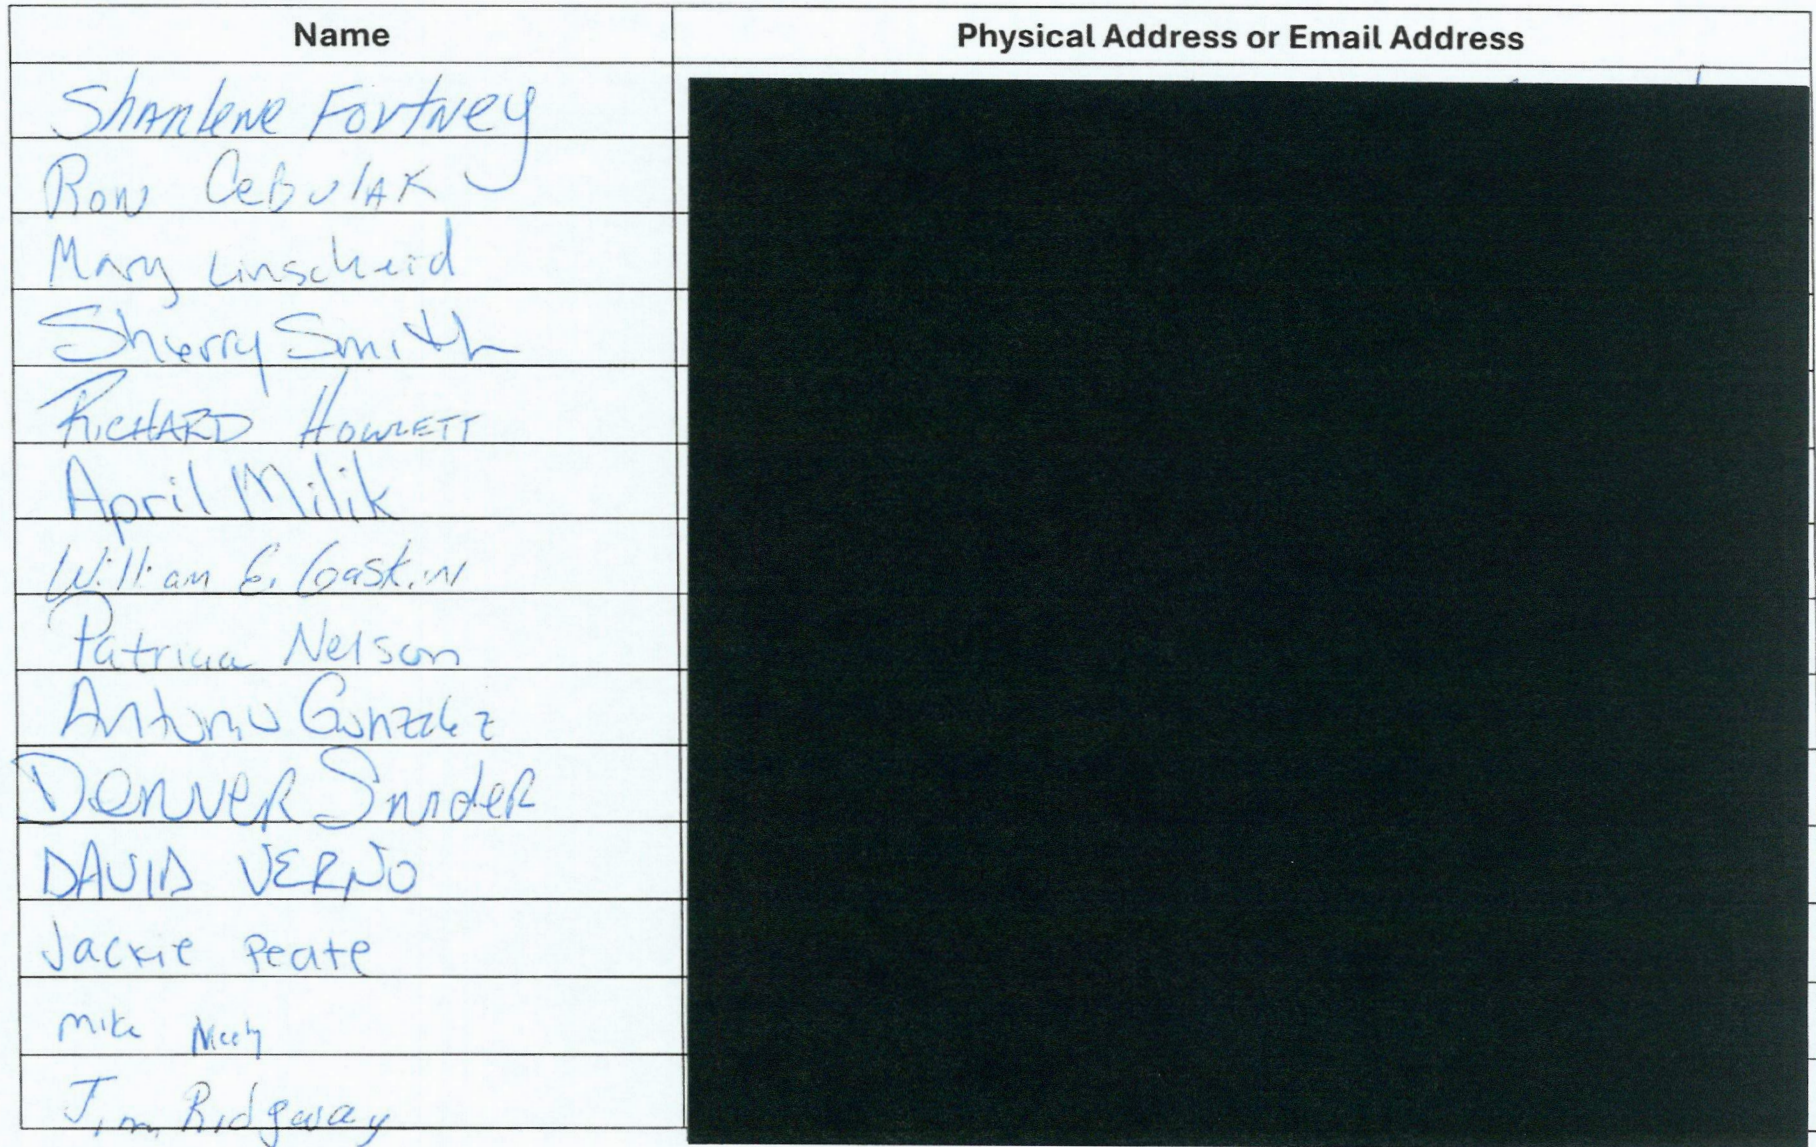 Name Physical Address or Email Address
Sharlene Fortney
Ron Cebulak
Mary Linscheid
Sherry Smith
Richard Howlett
April Milik
William E. Gaskin
Patricia Nelson
Antonio Gonzalez
Denver Snider
DAVID VERNO
Jackie Peate
Mike
Jim Ridgway